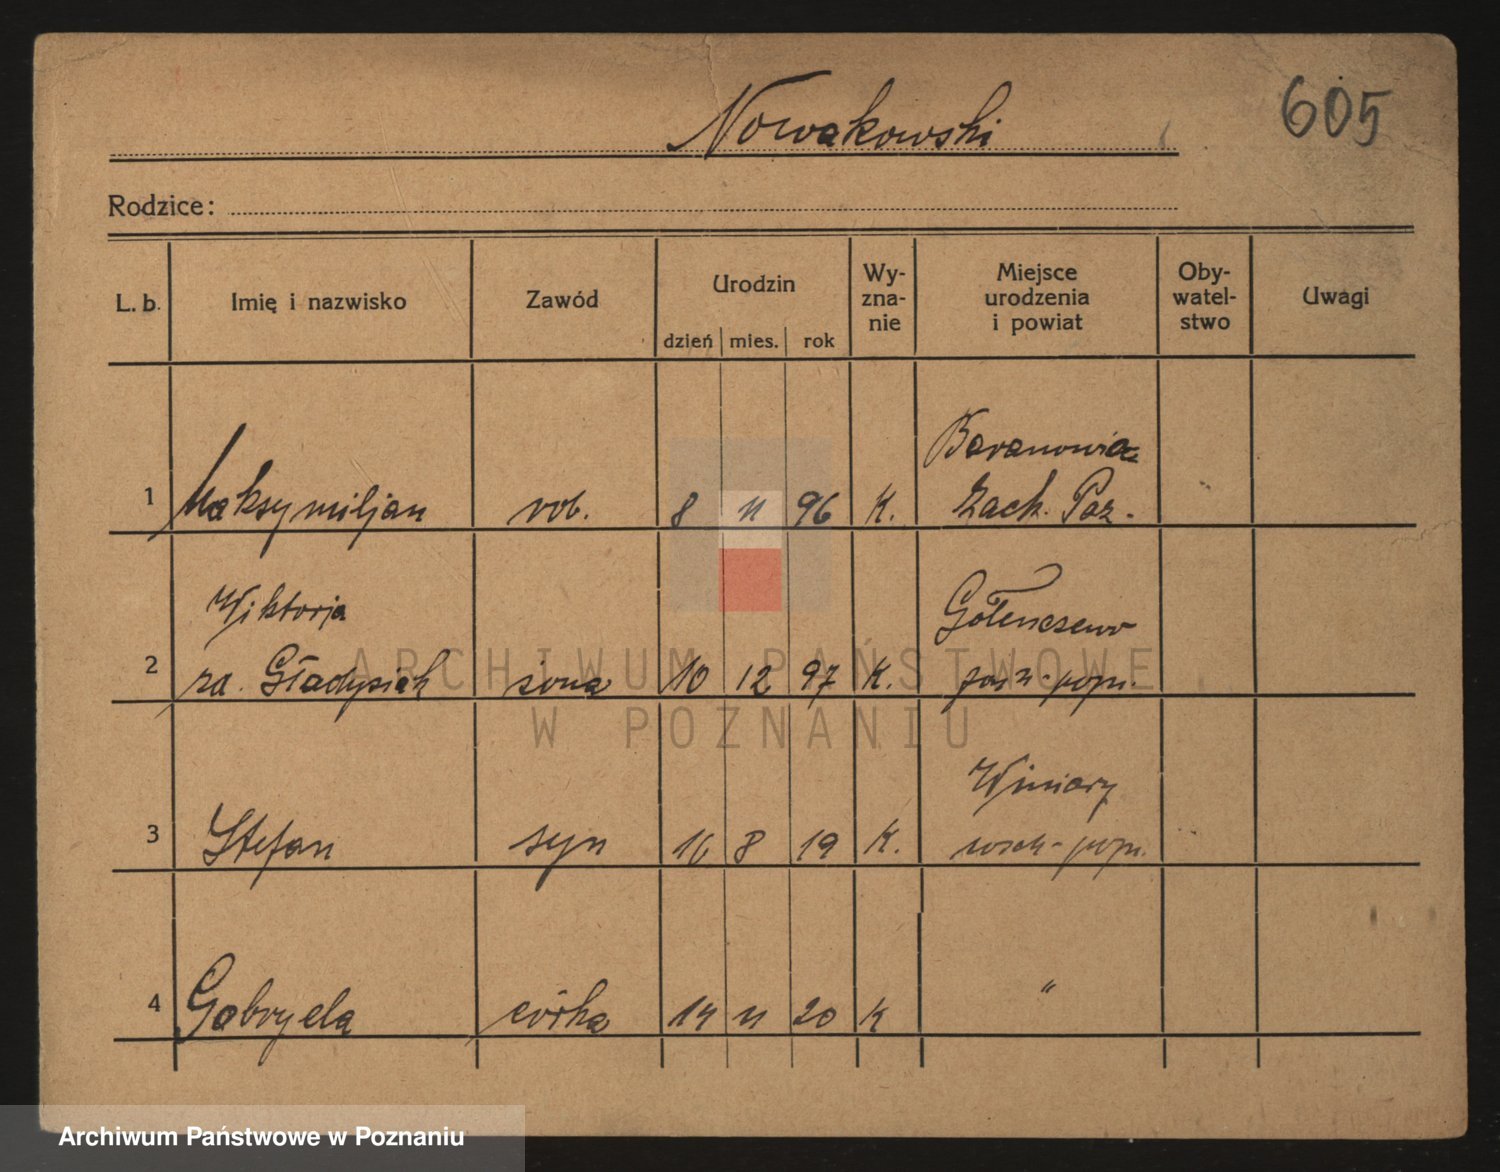 Nowakowski
605
Rodzice:
L. b.
Imię i nazwisko
Zawód
Urodzin
dzień mies. rok
Wy-
zna-
nie
Miejsce
urodzenia
i powiat
Oby-
watel-
stwo
Uwagi
Baranowia
1 Maksymiljan rob. 8 11 96 K. Zach. Poz.
Wiktorja Gołenczewo
2 za. Gładysiak żona 10 12 97 K.
Winiary
3 Stefan syn 16 8 19 K.
4 Gabryela córka 14 11 20 K "
ARCHIWUM PAŃSTWOWE
W POZNANIU
Archiwum Państwowe w Poznaniu